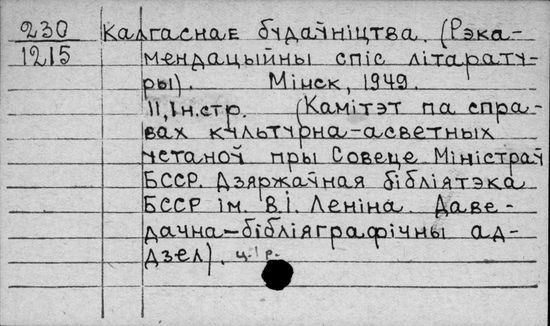 230
1215
Калгаснае будаўніцтва. (Рэка-
мендацыйны спіс літарату-
ры). Мінск, 1949.
11, 1 н.стр. (Камітэт па спра-
вах культурна-асветных
устаноў пры Совеце Міністраў
БССР. Дзяржаўная бібліятэка
БССР ім. В.І. Леніна. Даве-
дачна-бібліяграфічны ад-
дзел). ц. 1 р.